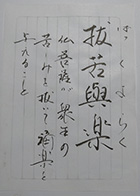 ばっくよらく
抜苦與楽
仏菩薩が衆生の
苦しみを抜いて福楽を
与えること